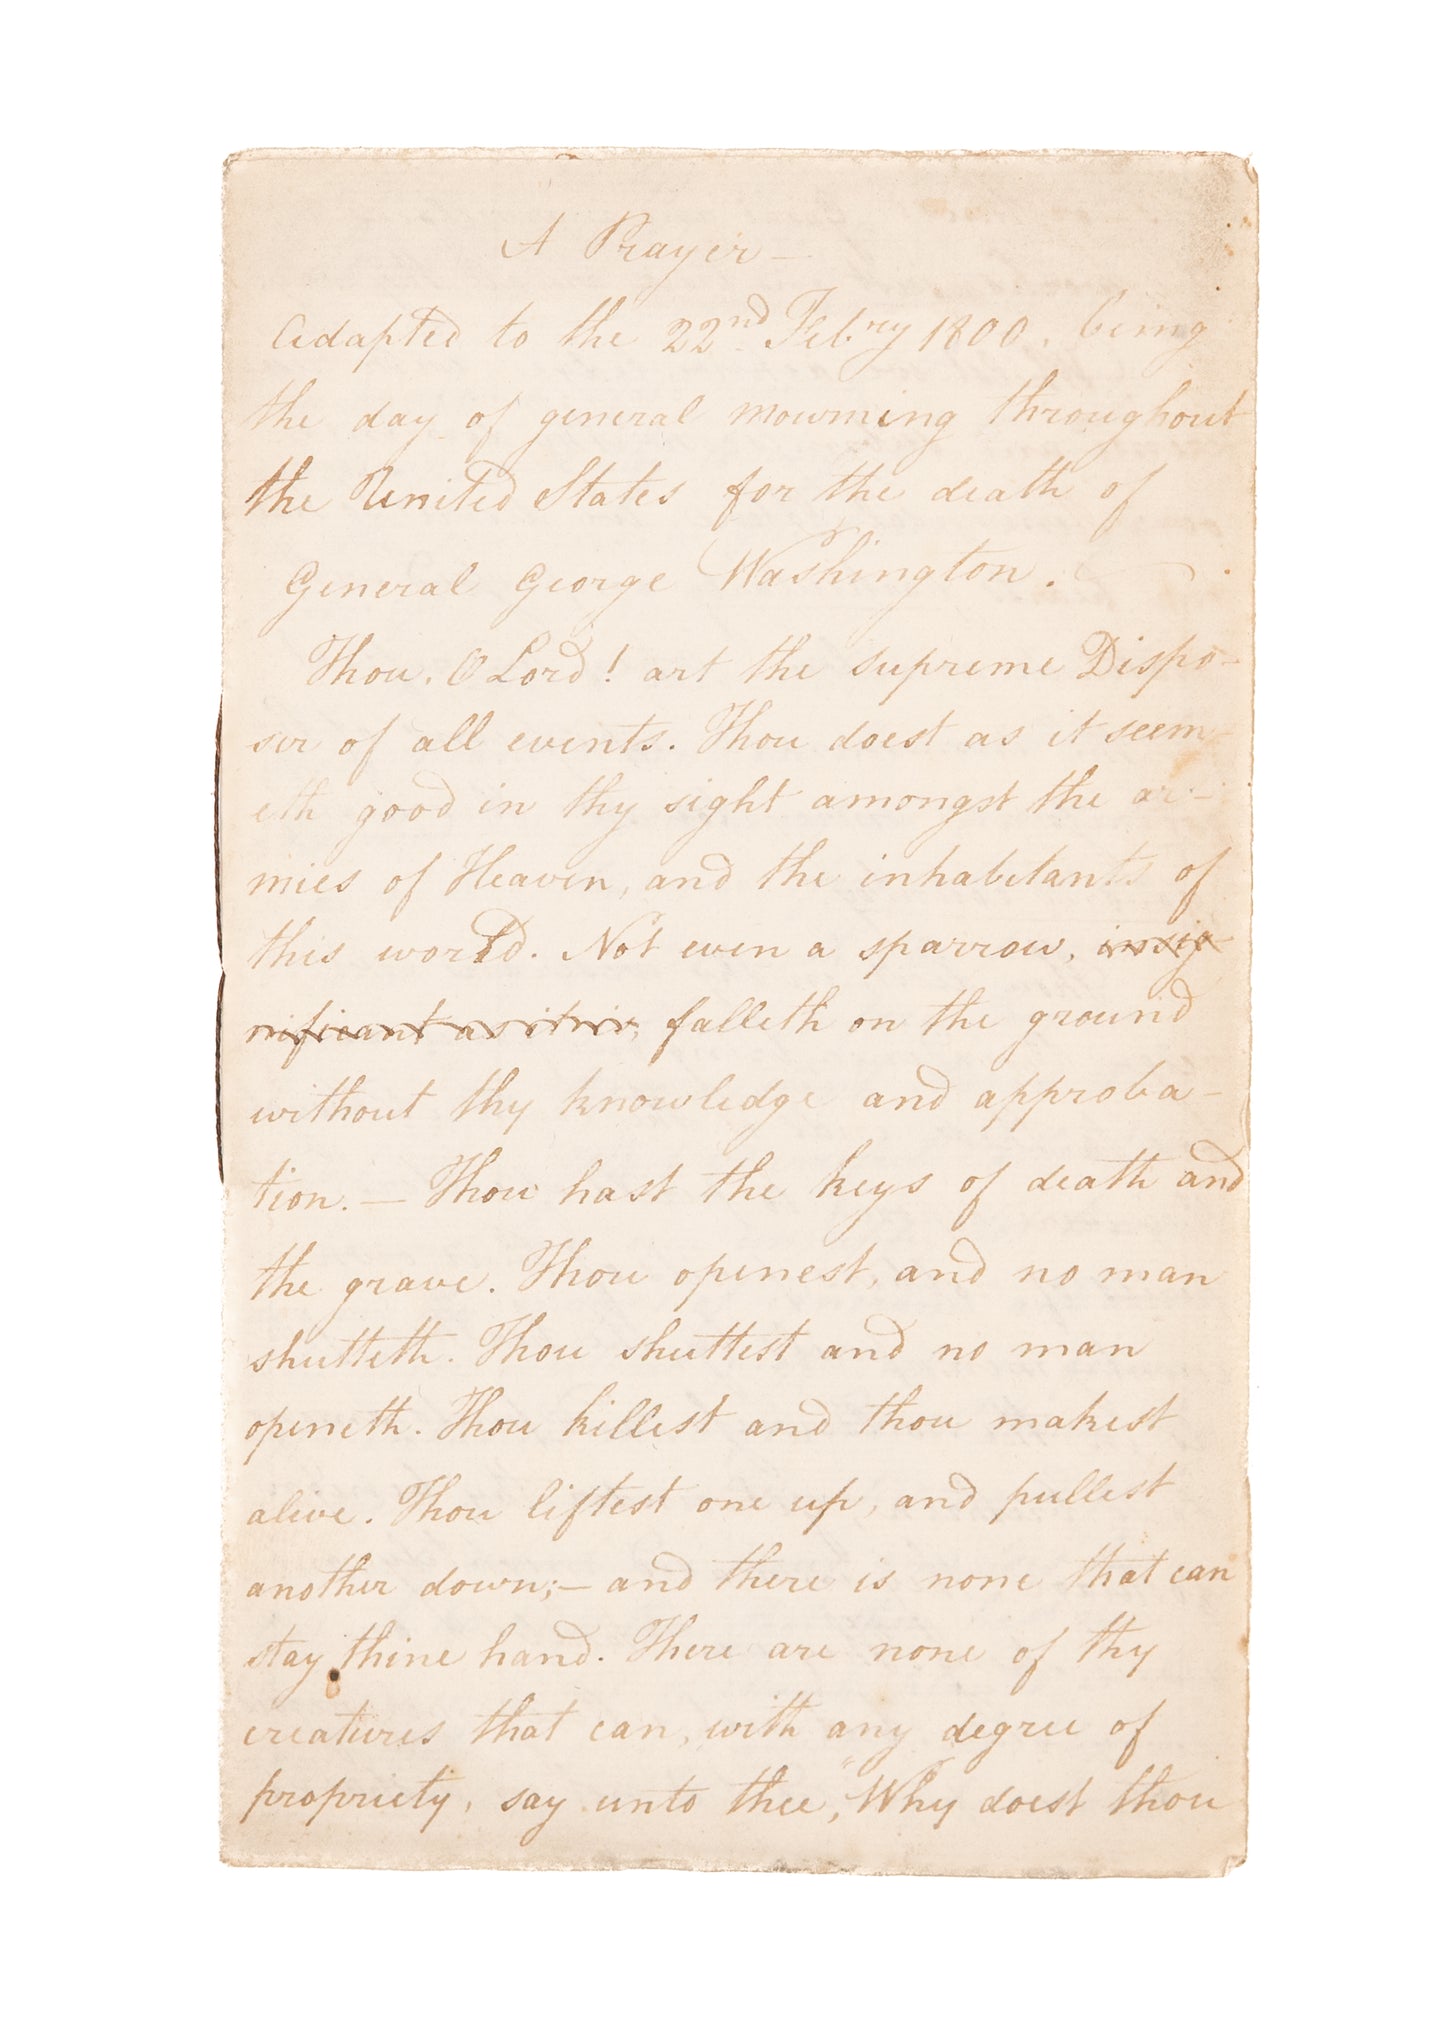 A Prayer—
Adapted to the 22nd Febry 1800, being
the day of general mourning throughout
the United States for the death of
General George Washington.
Thou, O Lord! art the supreme Dispo-
ser of all events. Thou doest as it seem-
eth good in thy sight amongst the ar-
mies of Heaven, and the inhabitants of
this world. Not even a sparrow, insig-
nificant as it is, falleth on the ground
without thy knowledge and approba-
tion.— Thou hast the keys of death and
the grave. Thou openest, and no man
shutteth. Thou shuttest and no man
openeth. Thou killest and thou makest
alive. Thou liftest one up, and pullest
another down;— and there is none that can
stay thine hand. There are none of thy
creatures that can, with any degree of
propriety, say unto thee, "Why doest thou